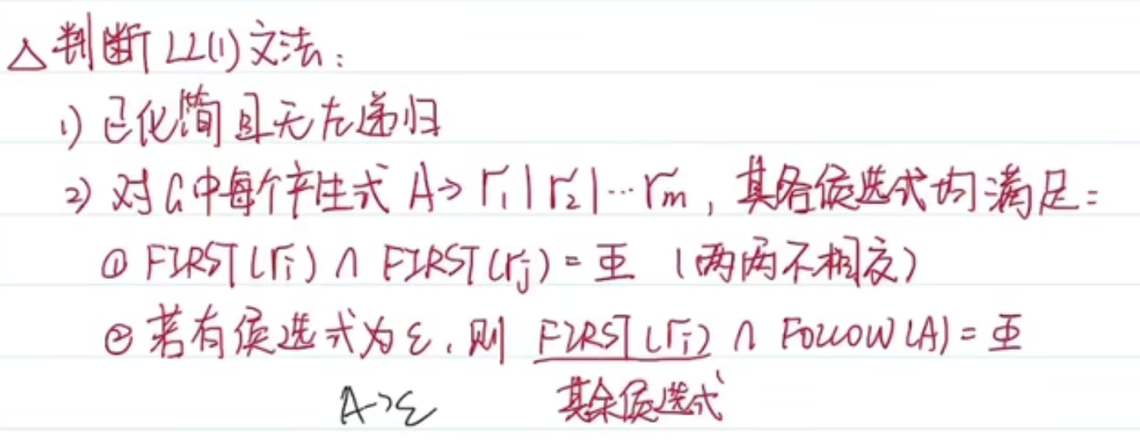 △判断LL(1)文法:
1) 已化简且无左递归
2) 对G中每个产生式 A→r₁|r₂|…rₘ, 其各候选式均满足:
① FIRST(rᵢ) ∩ FIRST(rⱼ) = Φ (两两不相交)
② 若有候选式为ε, 则 FIRST(rᵢ) ∩ FOLLOW(A) = Φ
A→ε 其余候选式